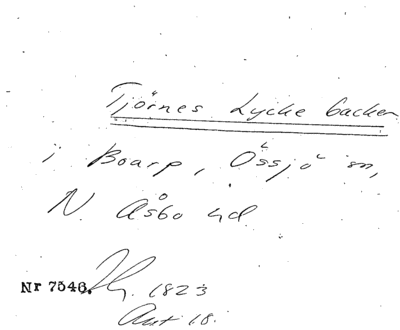 Tjörnes Lycke backen
i Boarp, Össjö sn,
N. Åsbo hd
Nr 7546. 1823
Ant 18.